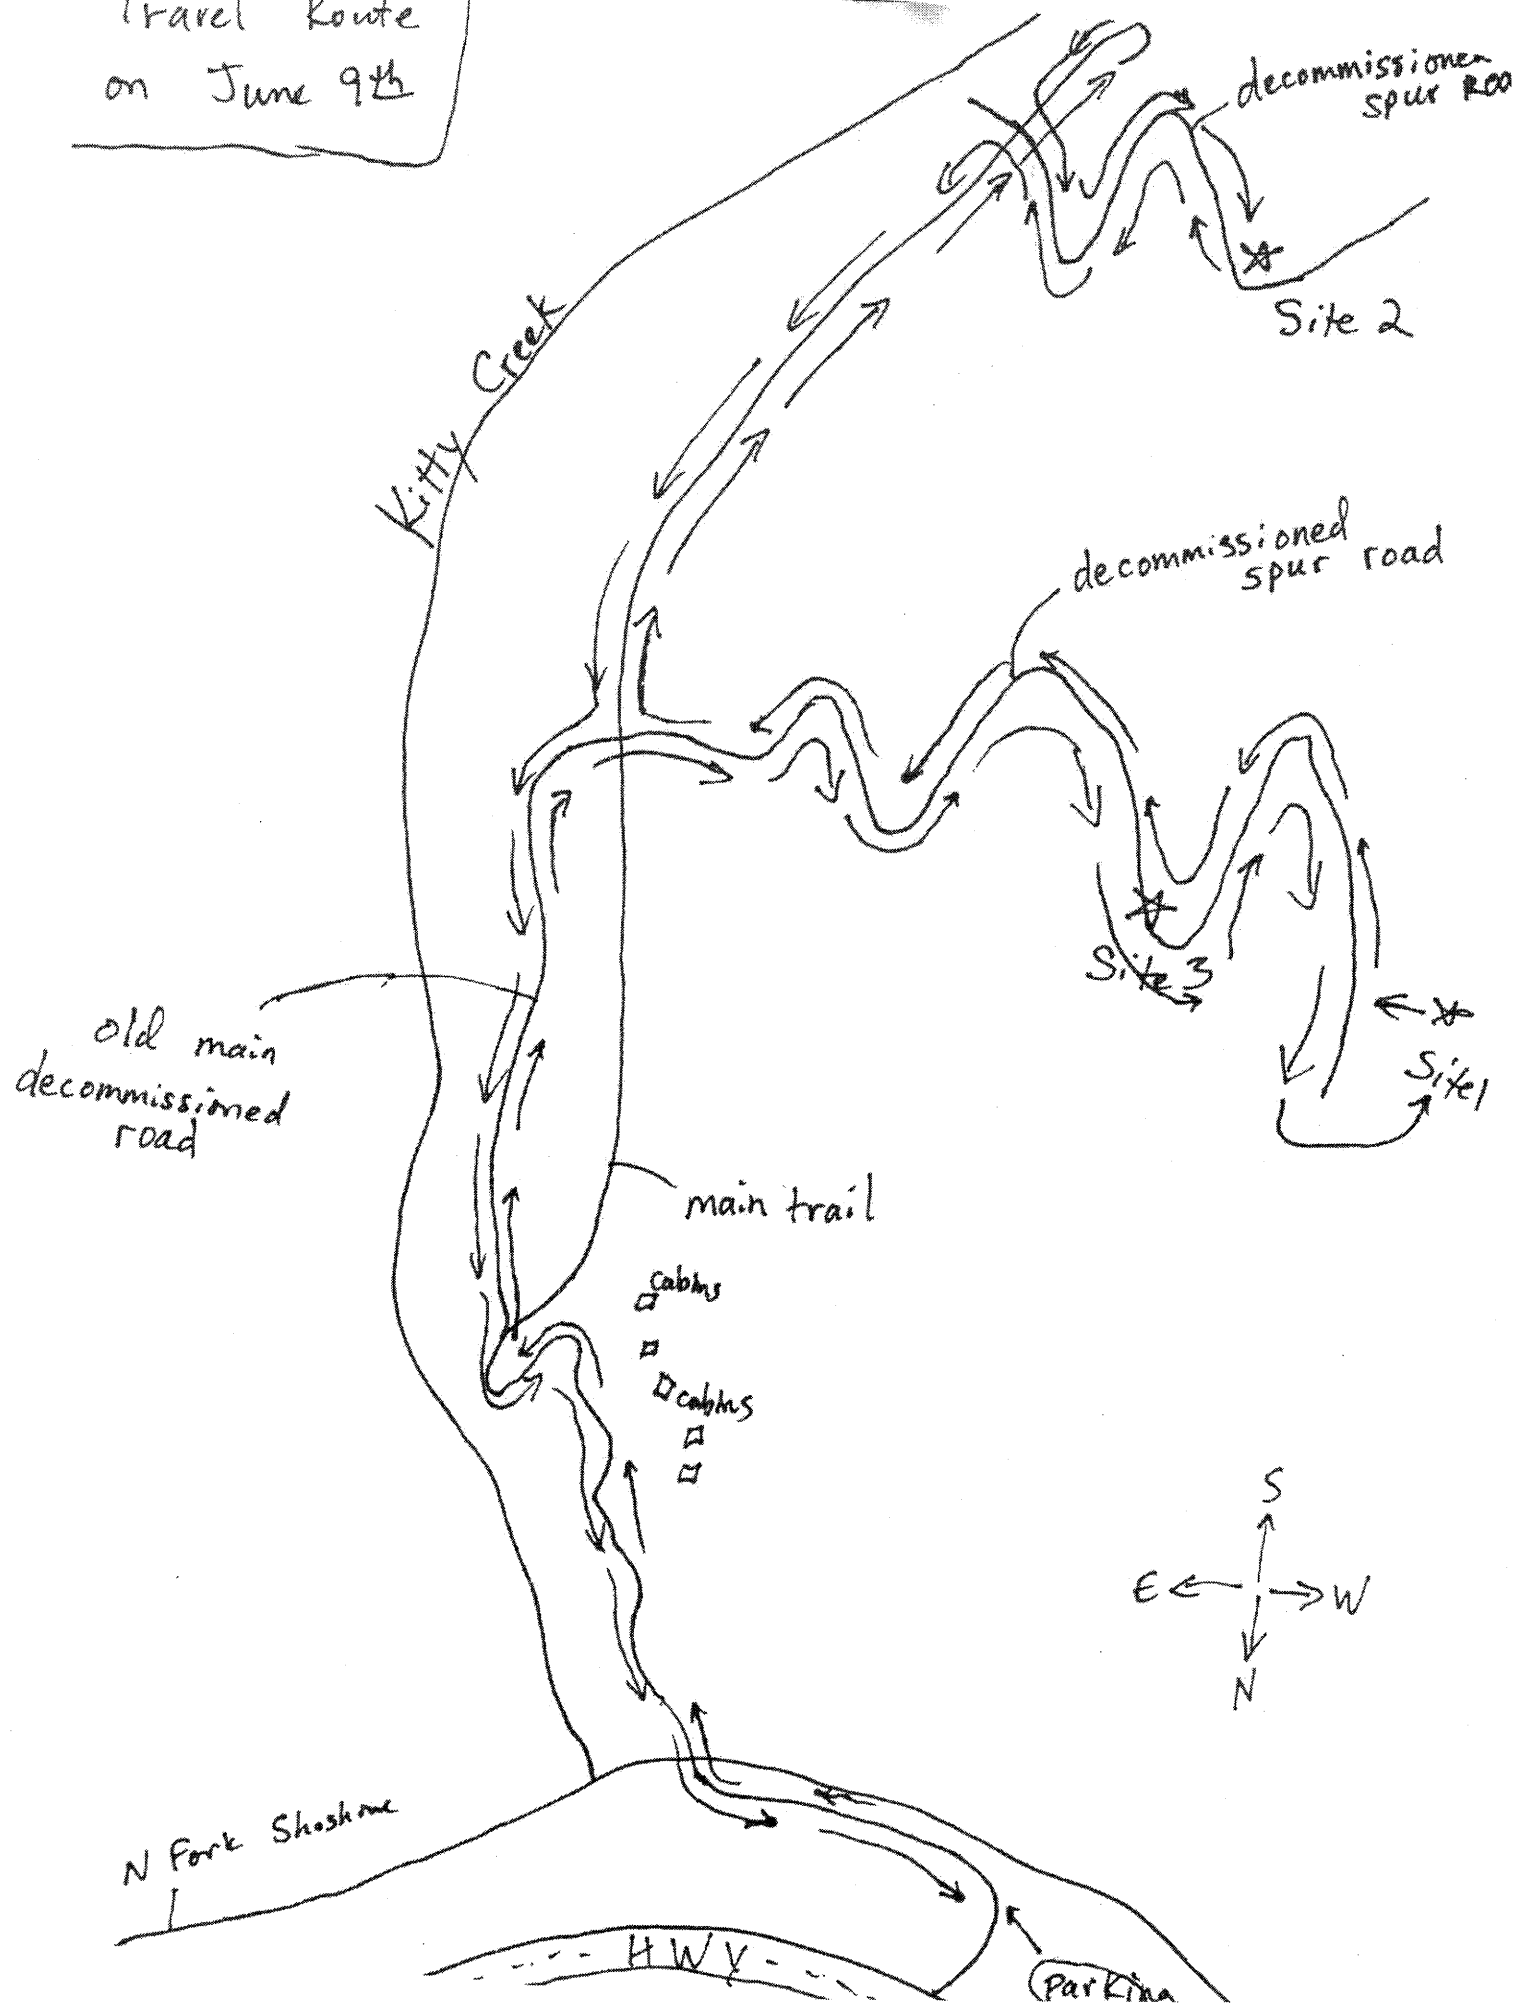 Travel Route
on June 9th
decommissioned
spur Roo
Kitty Creek
Site 2
decommissioned
spur road
Site 3
Site 1
old main
decommissioned
road
main trail
cabins
cabins
S
E W
N
N Fork Shoshone
HWY
Parking